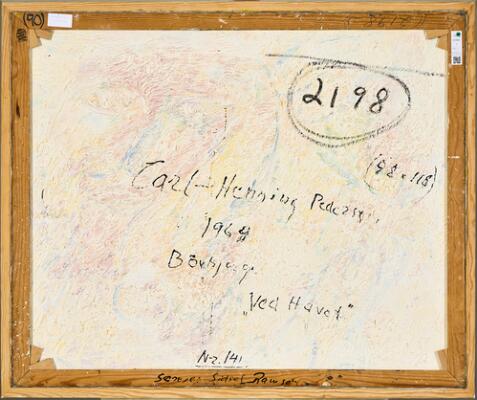 (90)
2198
(98 x 118)
Carl-Henning Pedersen
1969
Bovbjerg
„Ved Havet"
Nr. 141